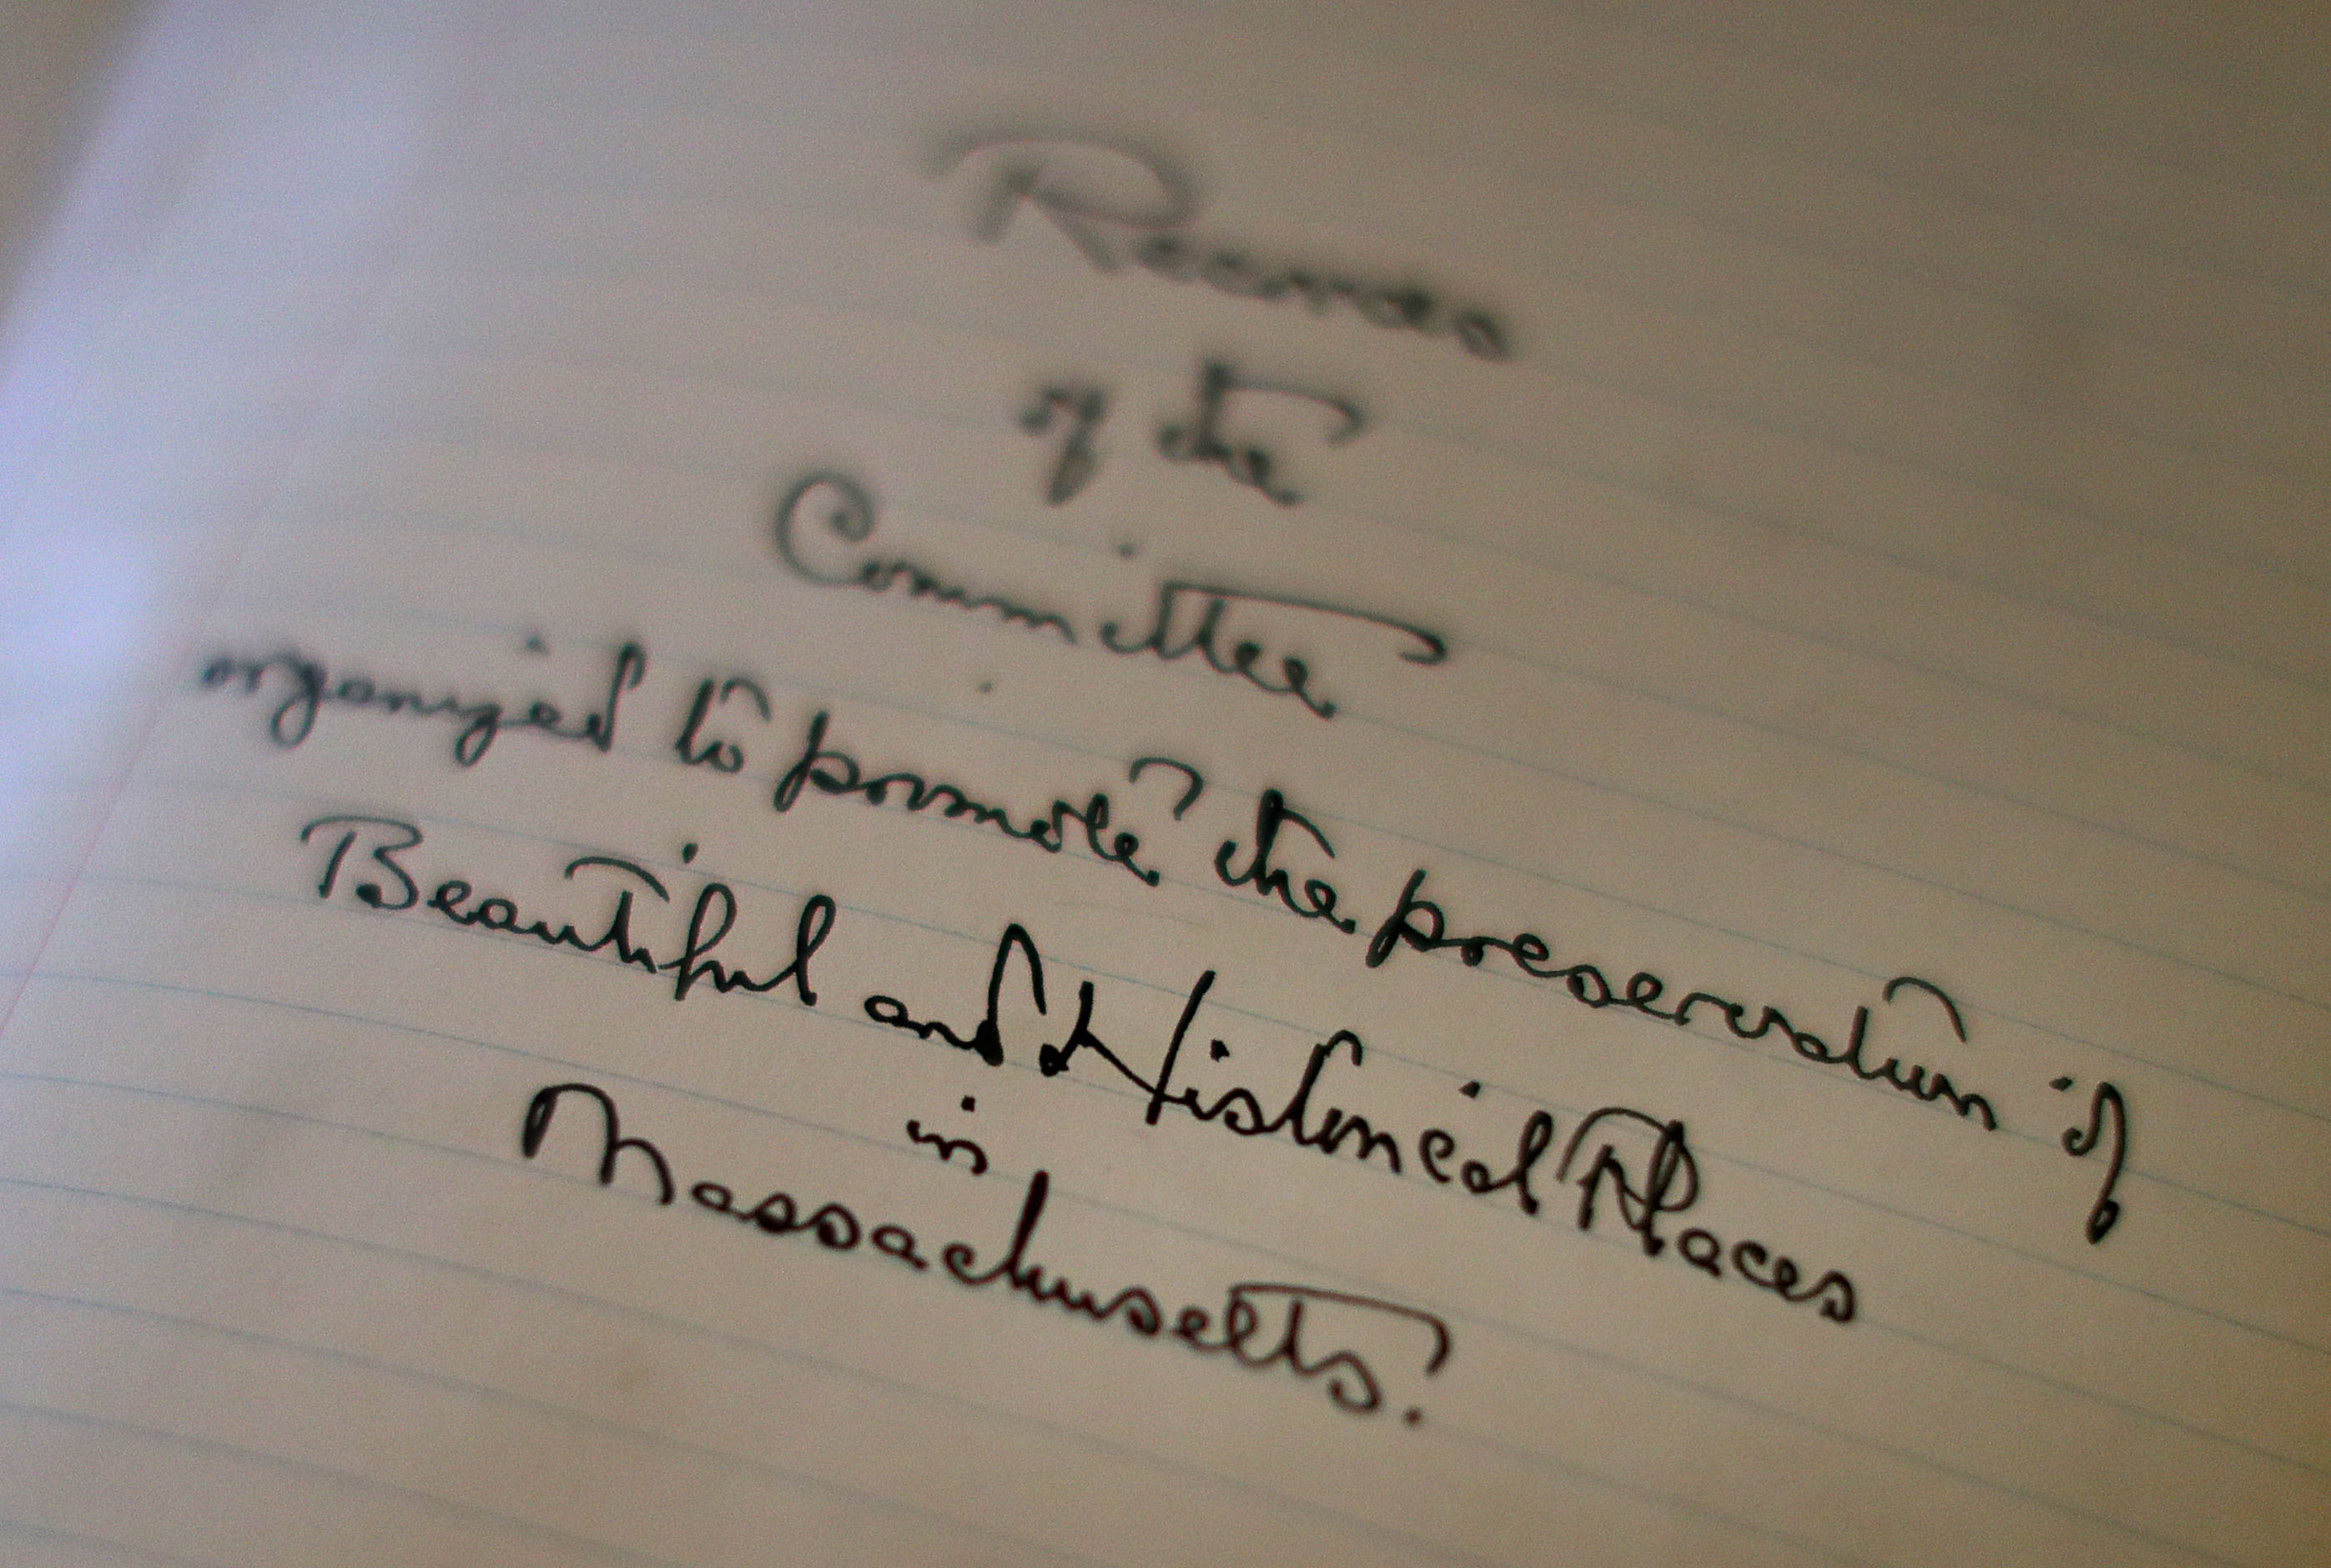 Records
of the
Committee
organized to promote the preservation of
Beautiful and Historical Places
in
Massachusetts.